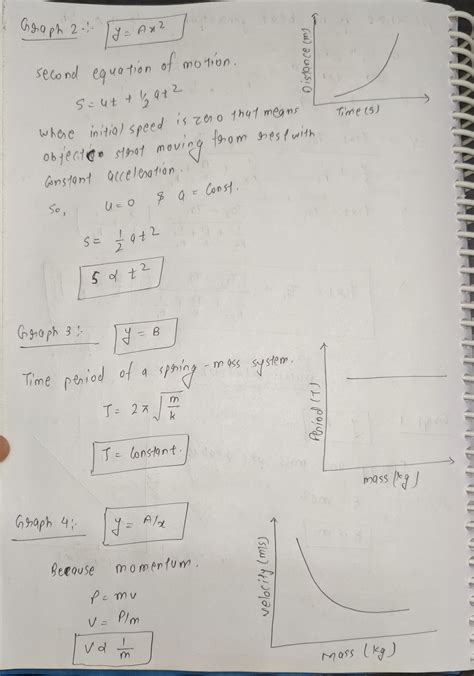 Graph 2:-  y = Ax²
Second equation of motion.
S = ut + ½ at²
Distance (m)
Time (s)
where initial speed is zero that means
object start moving from rest with
constant acceleration.
So, u = 0 & a = Const.
S = 1/2 at²
S α t²
Graph 3:-  y = B
Time period of a spring-mass system.
T = 2π √(m/k)
T = Constant.
Period (T)
mass (kg)
Graph 4:-  y = A/x
Because momentum.
P = mv
V = P/m
V α 1/m
velocity (m/s)
Mass (kg)